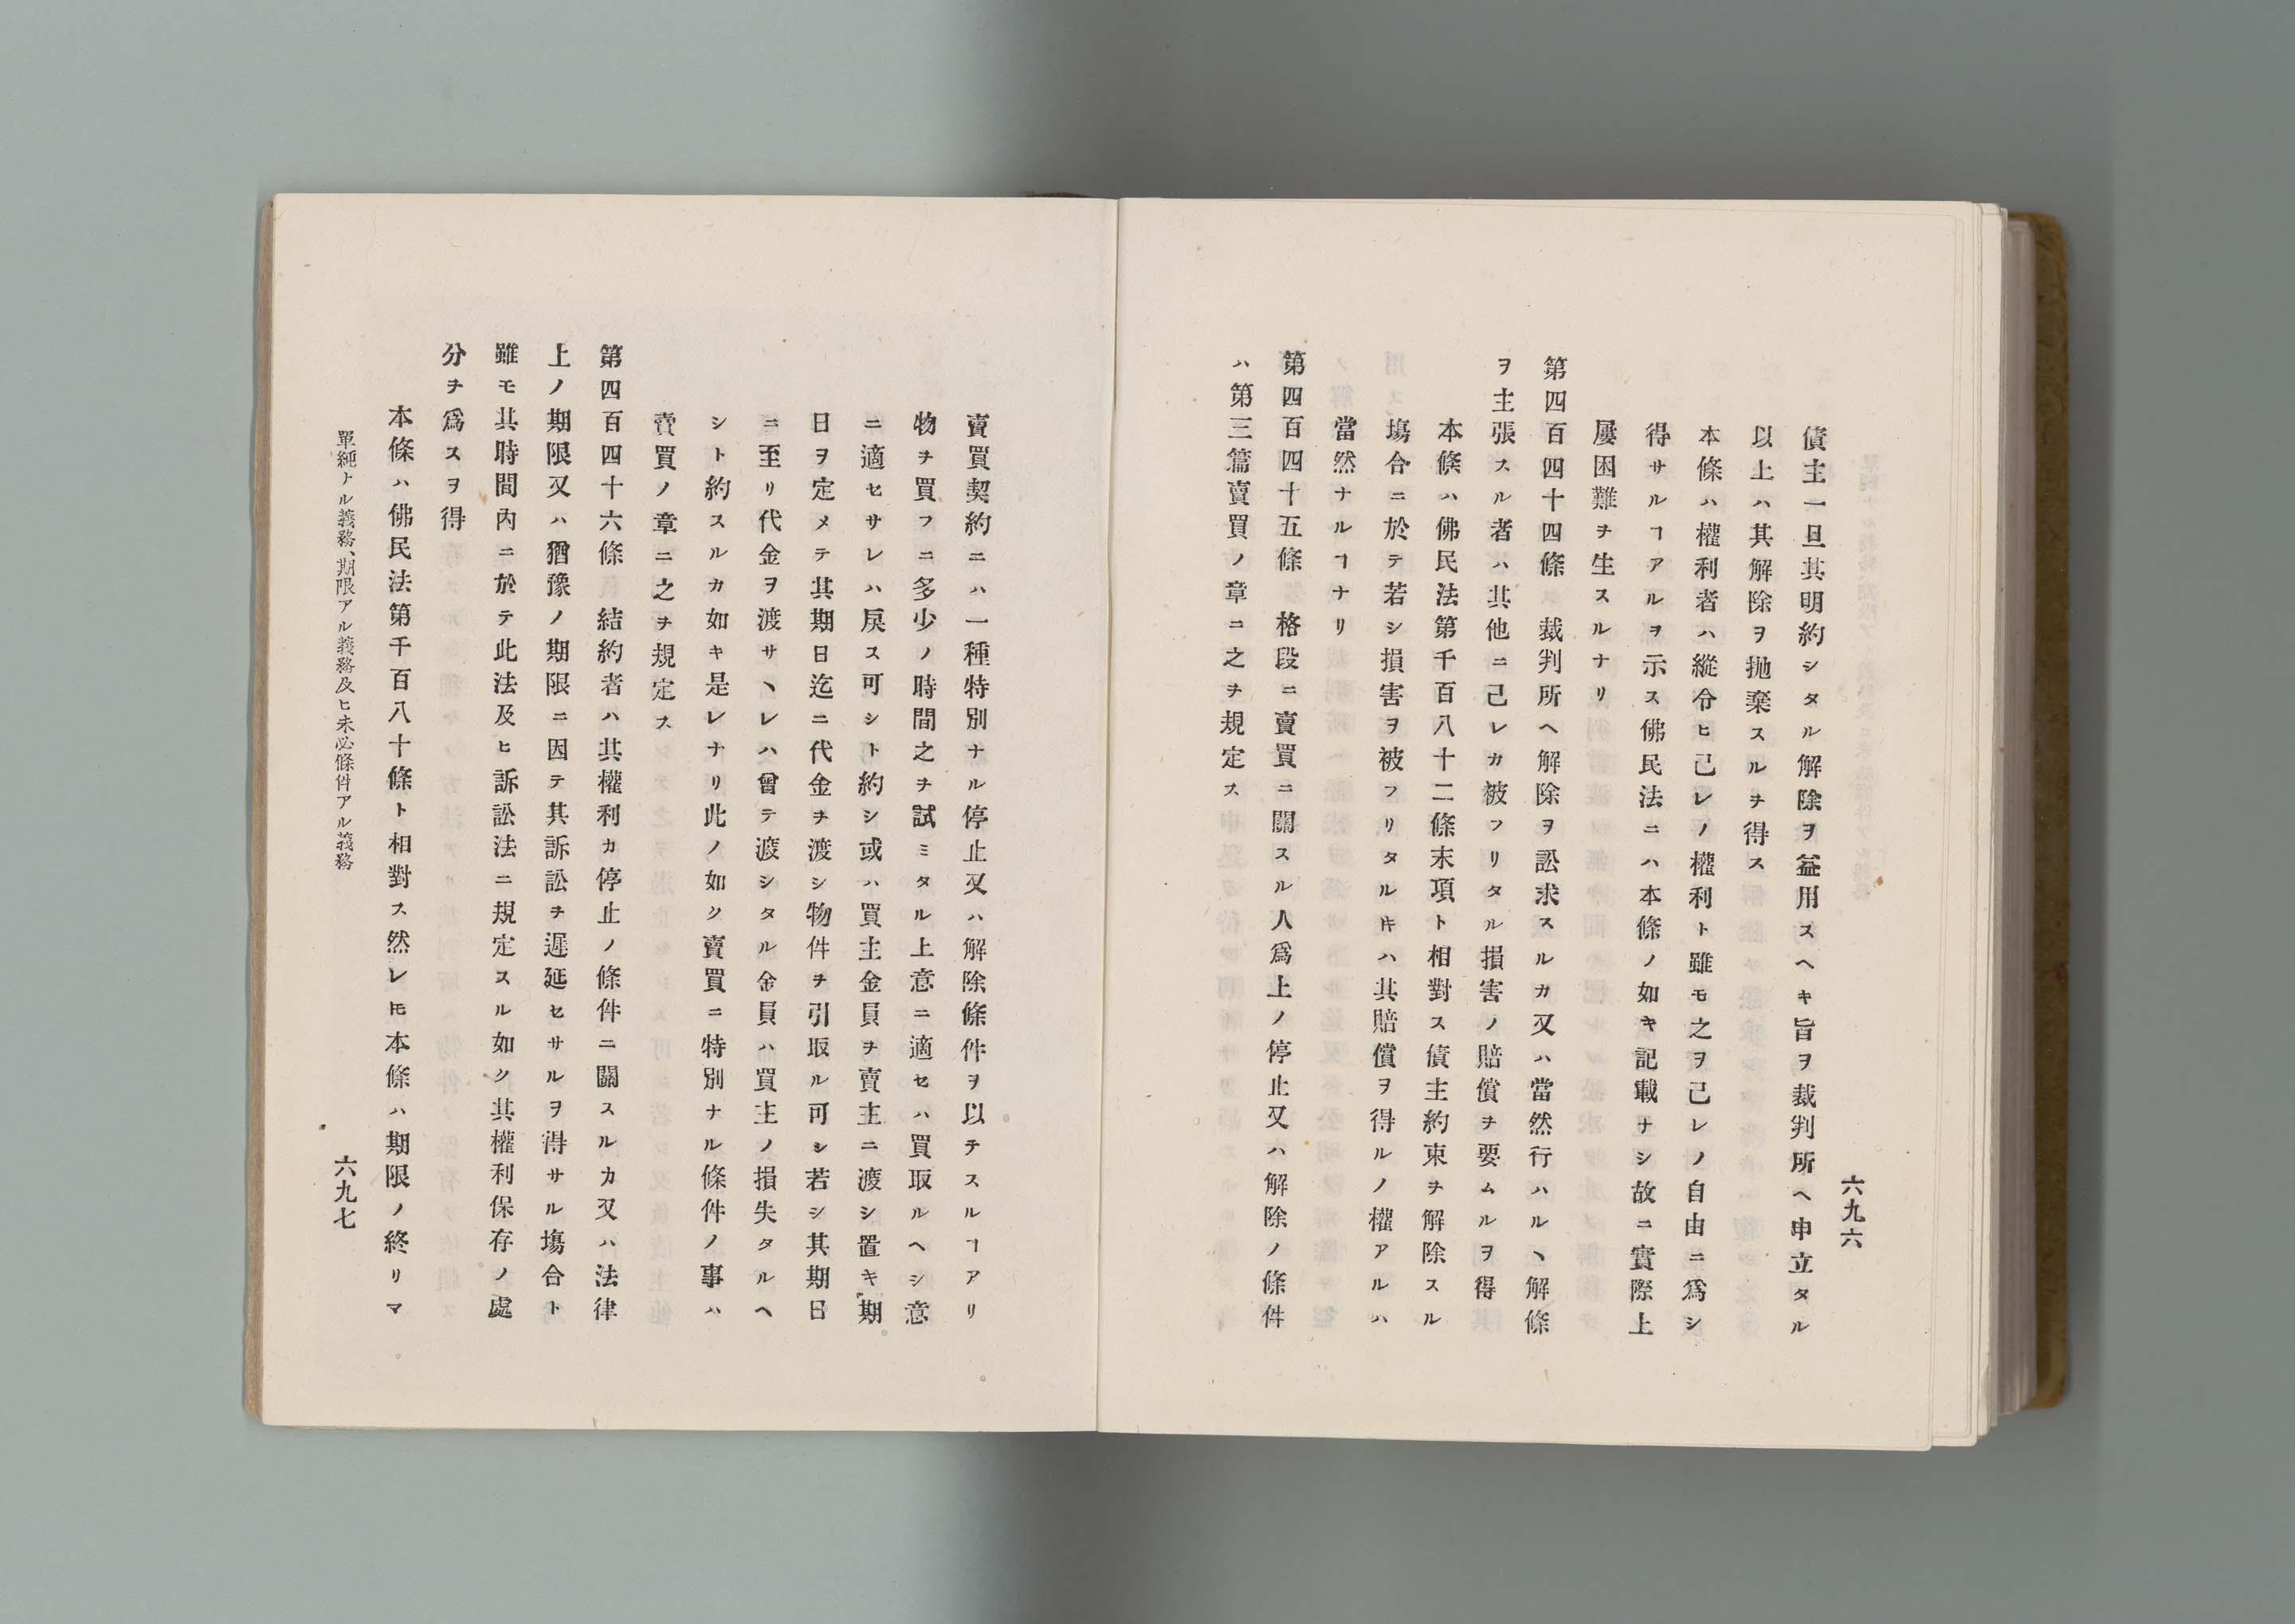 六九六
債主一旦其明約シタル解除ヲ益用スヘキ旨ヲ裁判所ヘ申立タル
以上ハ其解除ヲ抛棄スルヲ得ス
本條ハ權利者ハ縱令ヒ己レノ權利ト雖モ之ヲ己レノ自由ニ爲シ
得サルヿアルヲ示ス佛民法ニハ本條ノ如キ記載ナシ故ニ實際上
屢困難ヲ生スルナリ
第四百四十四條 裁判所ヘ解除ヲ訟求スルカ又ハ當然行ハルヽ解條
ヲ主張スル者ハ其他ニ己レカ被フリタル損害ノ賠償ヲ要ムルヲ得
本條ハ佛民法第千百八十二條末項ト相對ス債主約束ヲ解除スル
塲合ニ於テ若シ損害ヲ被フリタルキハ其賠償ヲ得ルノ權アルハ
當然ナルヿナリ
第四百四十五條 格段ニ賣買ニ關スル人爲上ノ停止又ハ解除ノ條件
ハ第三篇賣買ノ章ニ之ヲ規定ス
賣買契約ニハ一種特別ナル停止又ハ解除條件ヲ以テスルヿアリ
物ヲ買フニ多少ノ時間之ヲ試ミタル上意ニ適セハ買取ルヘシ意
ニ適セサレハ戻ス可シト約シ或ハ買主金員ヲ賣主ニ渡シ置キ期
日ヲ定メテ其期日迄ニ代金ヲ渡シ物件ヲ引取ル可シ若シ其期日
ニ至リ代金ヲ渡サヽレハ曾テ渡シタル金員ハ買主ノ損失タルヘ
シト約スルカ如キ是レナリ此ノ如ク賣買ニ特別ナル條件ノ事ハ
賣買ノ章ニ之ヲ規定ス
第四百四十六條 結約者ハ其權利カ停止ノ條件ニ關スルカ又ハ法律
上ノ期限又ハ猶豫ノ期限ニ因テ其訴訟ヲ遲延セサルヲ得サル塲合ト
雖モ其時間内ニ於テ此法及ヒ訴訟法ニ規定スル如ク其權利保存ノ處
分ヲ爲スヲ得
本條ハ佛民法第千百八十條ト相對ス然レ𪜈本條ハ期限ノ終リマ
單純ナル義務、期限アル義務及ヒ未必條件アル義務
六九七